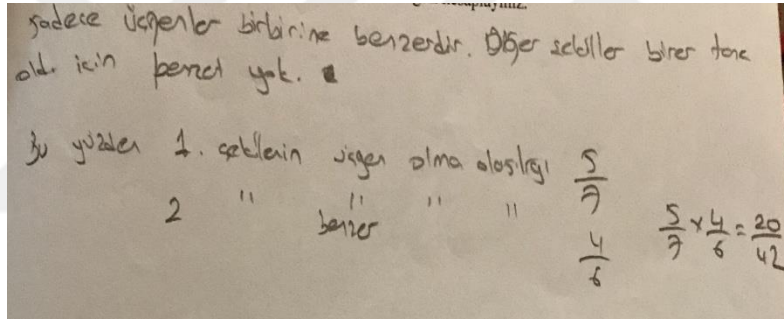 hesaplayınız.
sadece üçgenler birbirine benzerdir. Diğer şekiller birer tane
old. için benzer yok.
Bu yüzden 1. şekillerin üçgen olma olasılığı 5/7
2 " " benzer " " 4/6
5/7 x 4/6 = 20/42